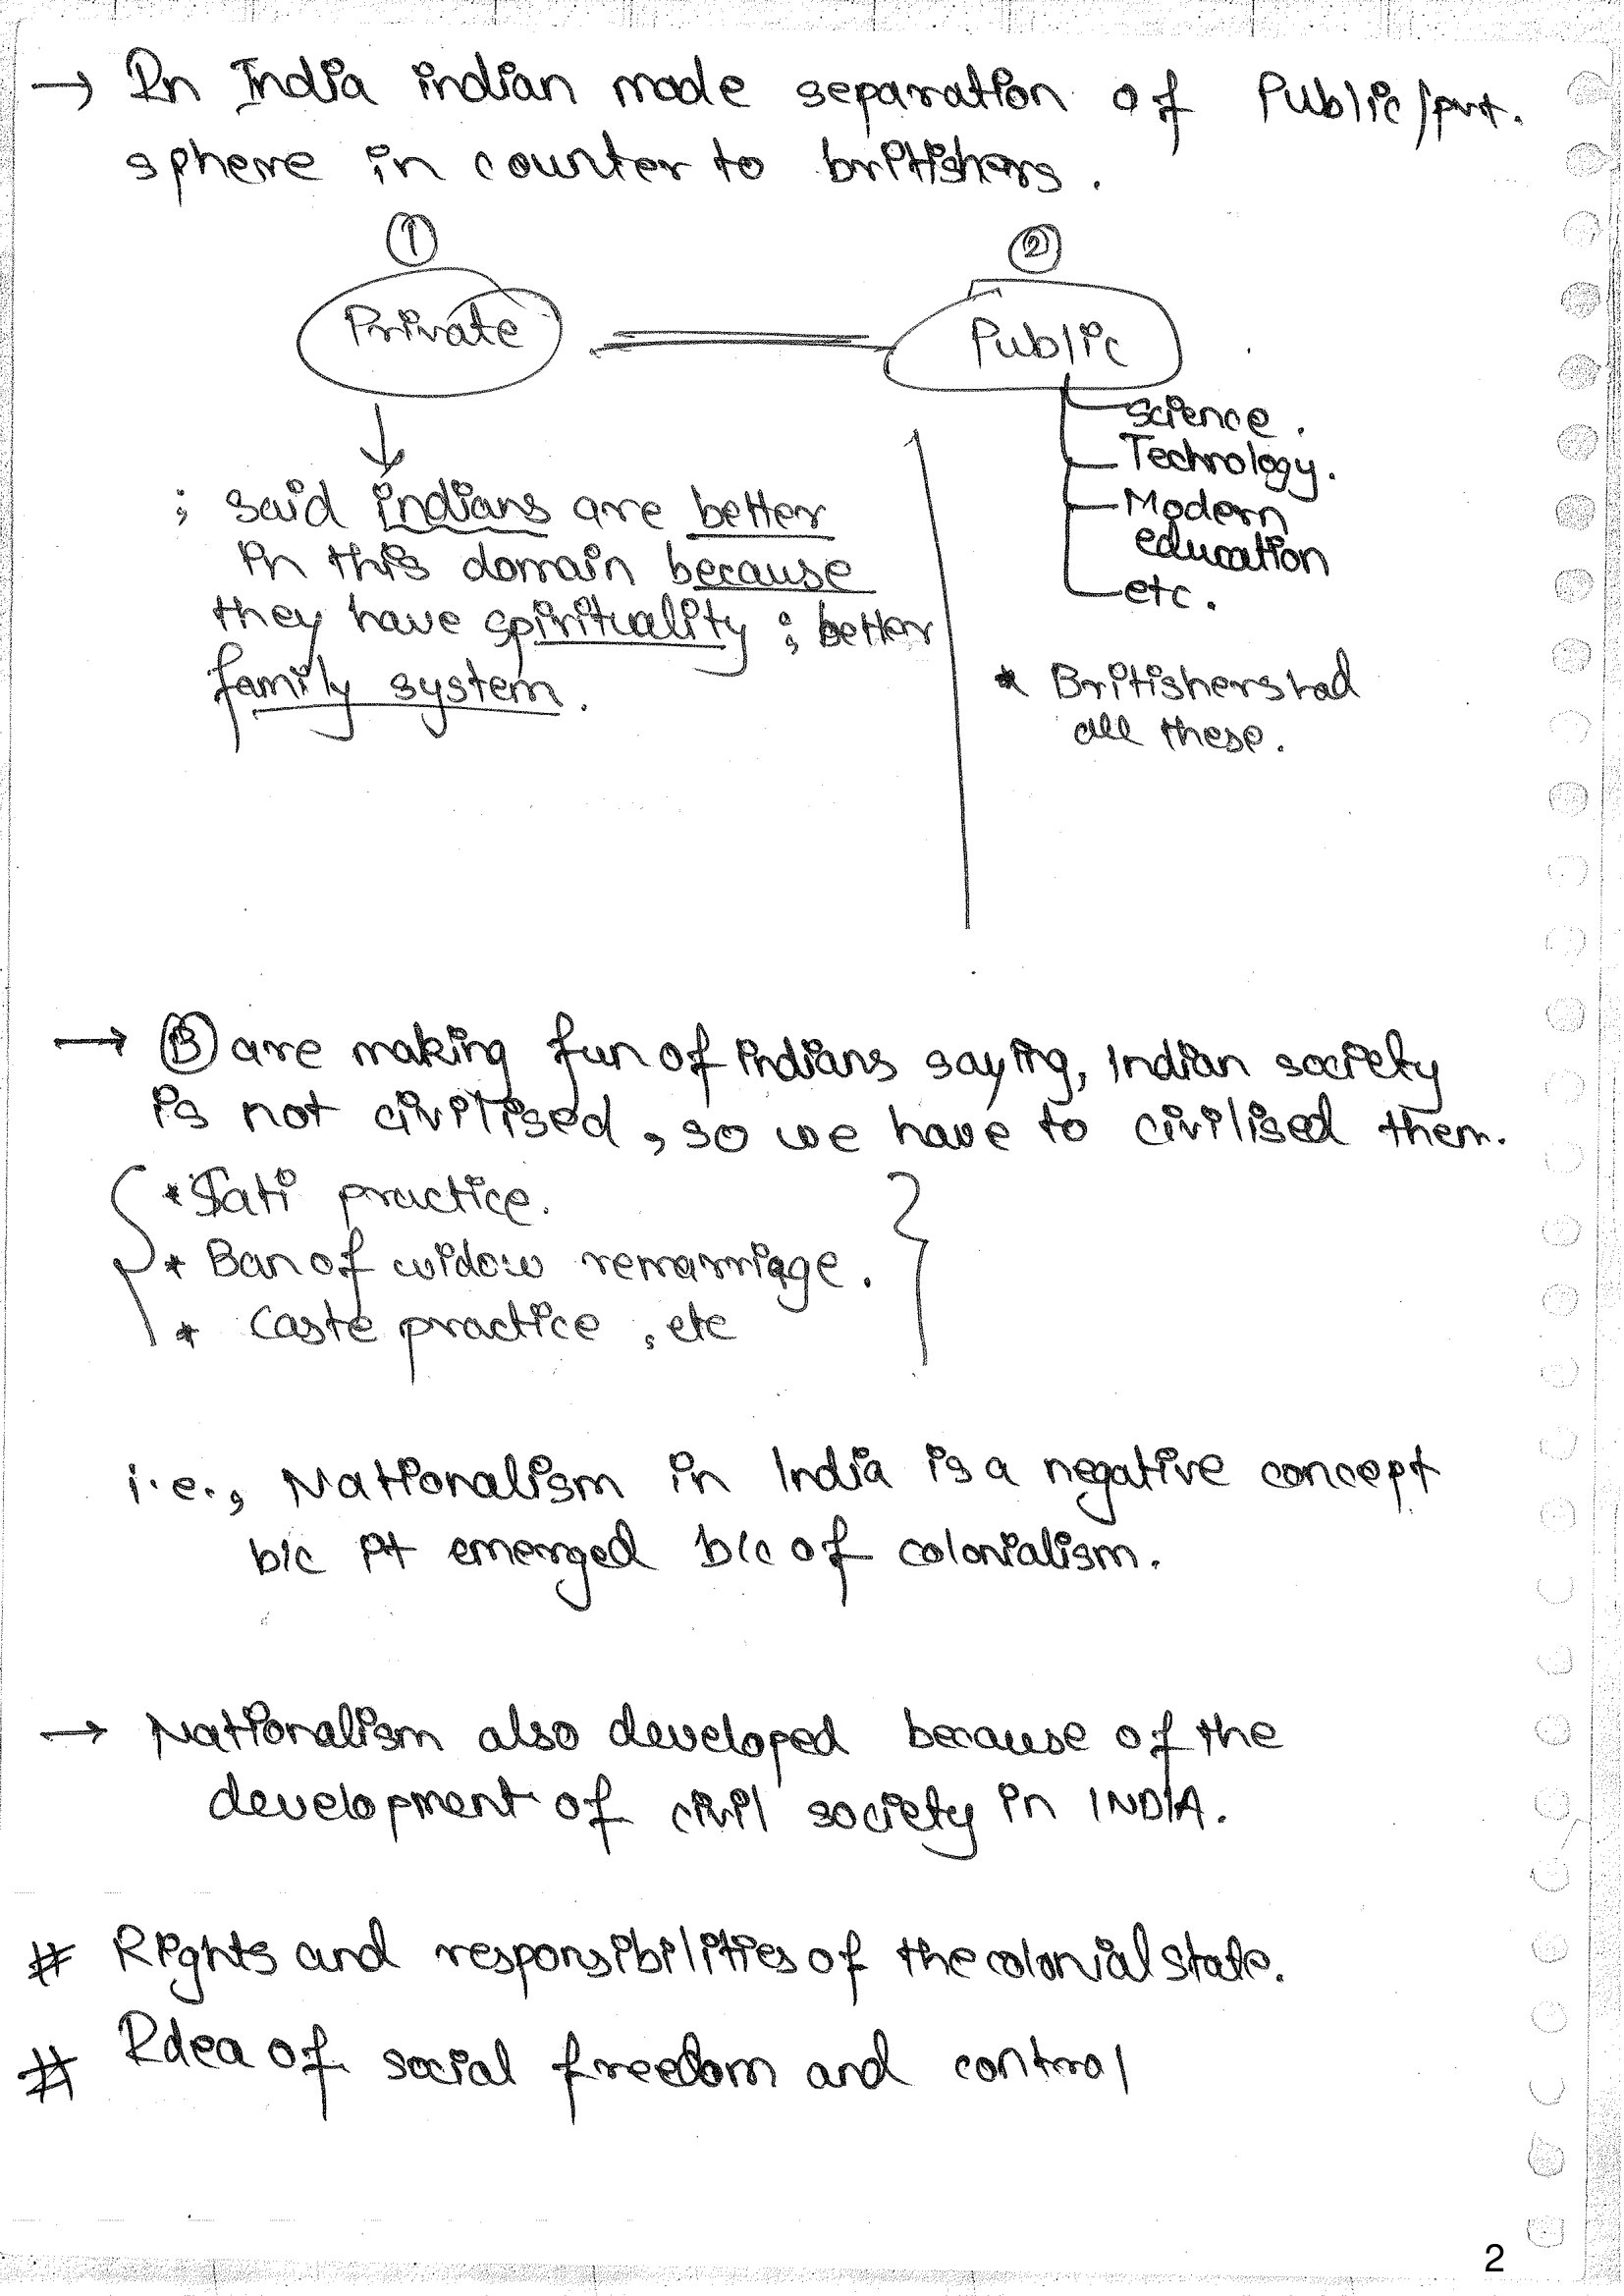 → In India indian made separation of Public/pvt.
sphere in counter to britishers.
① ②
Private Public
Science.
Technology.
Modern
education
etc.
; said indians are better
in this domain because
they have spirituality ; better
family system.
* Britishers had
all these.
→ Ⓑ are making fun of indians saying, Indian society
is not civilised, so we have to civilised them.
* Sati practice.
* Ban of widow remarriage.
* Caste practice, etc
i.e., Nationalism in India is a negative concept
b/c it emerged b/c of colonialism.
→ Nationalism also developed because of the
development of civil society in INDIA.
# Rights and responsibilities of the colonial state.
# Idea of social freedom and control
2